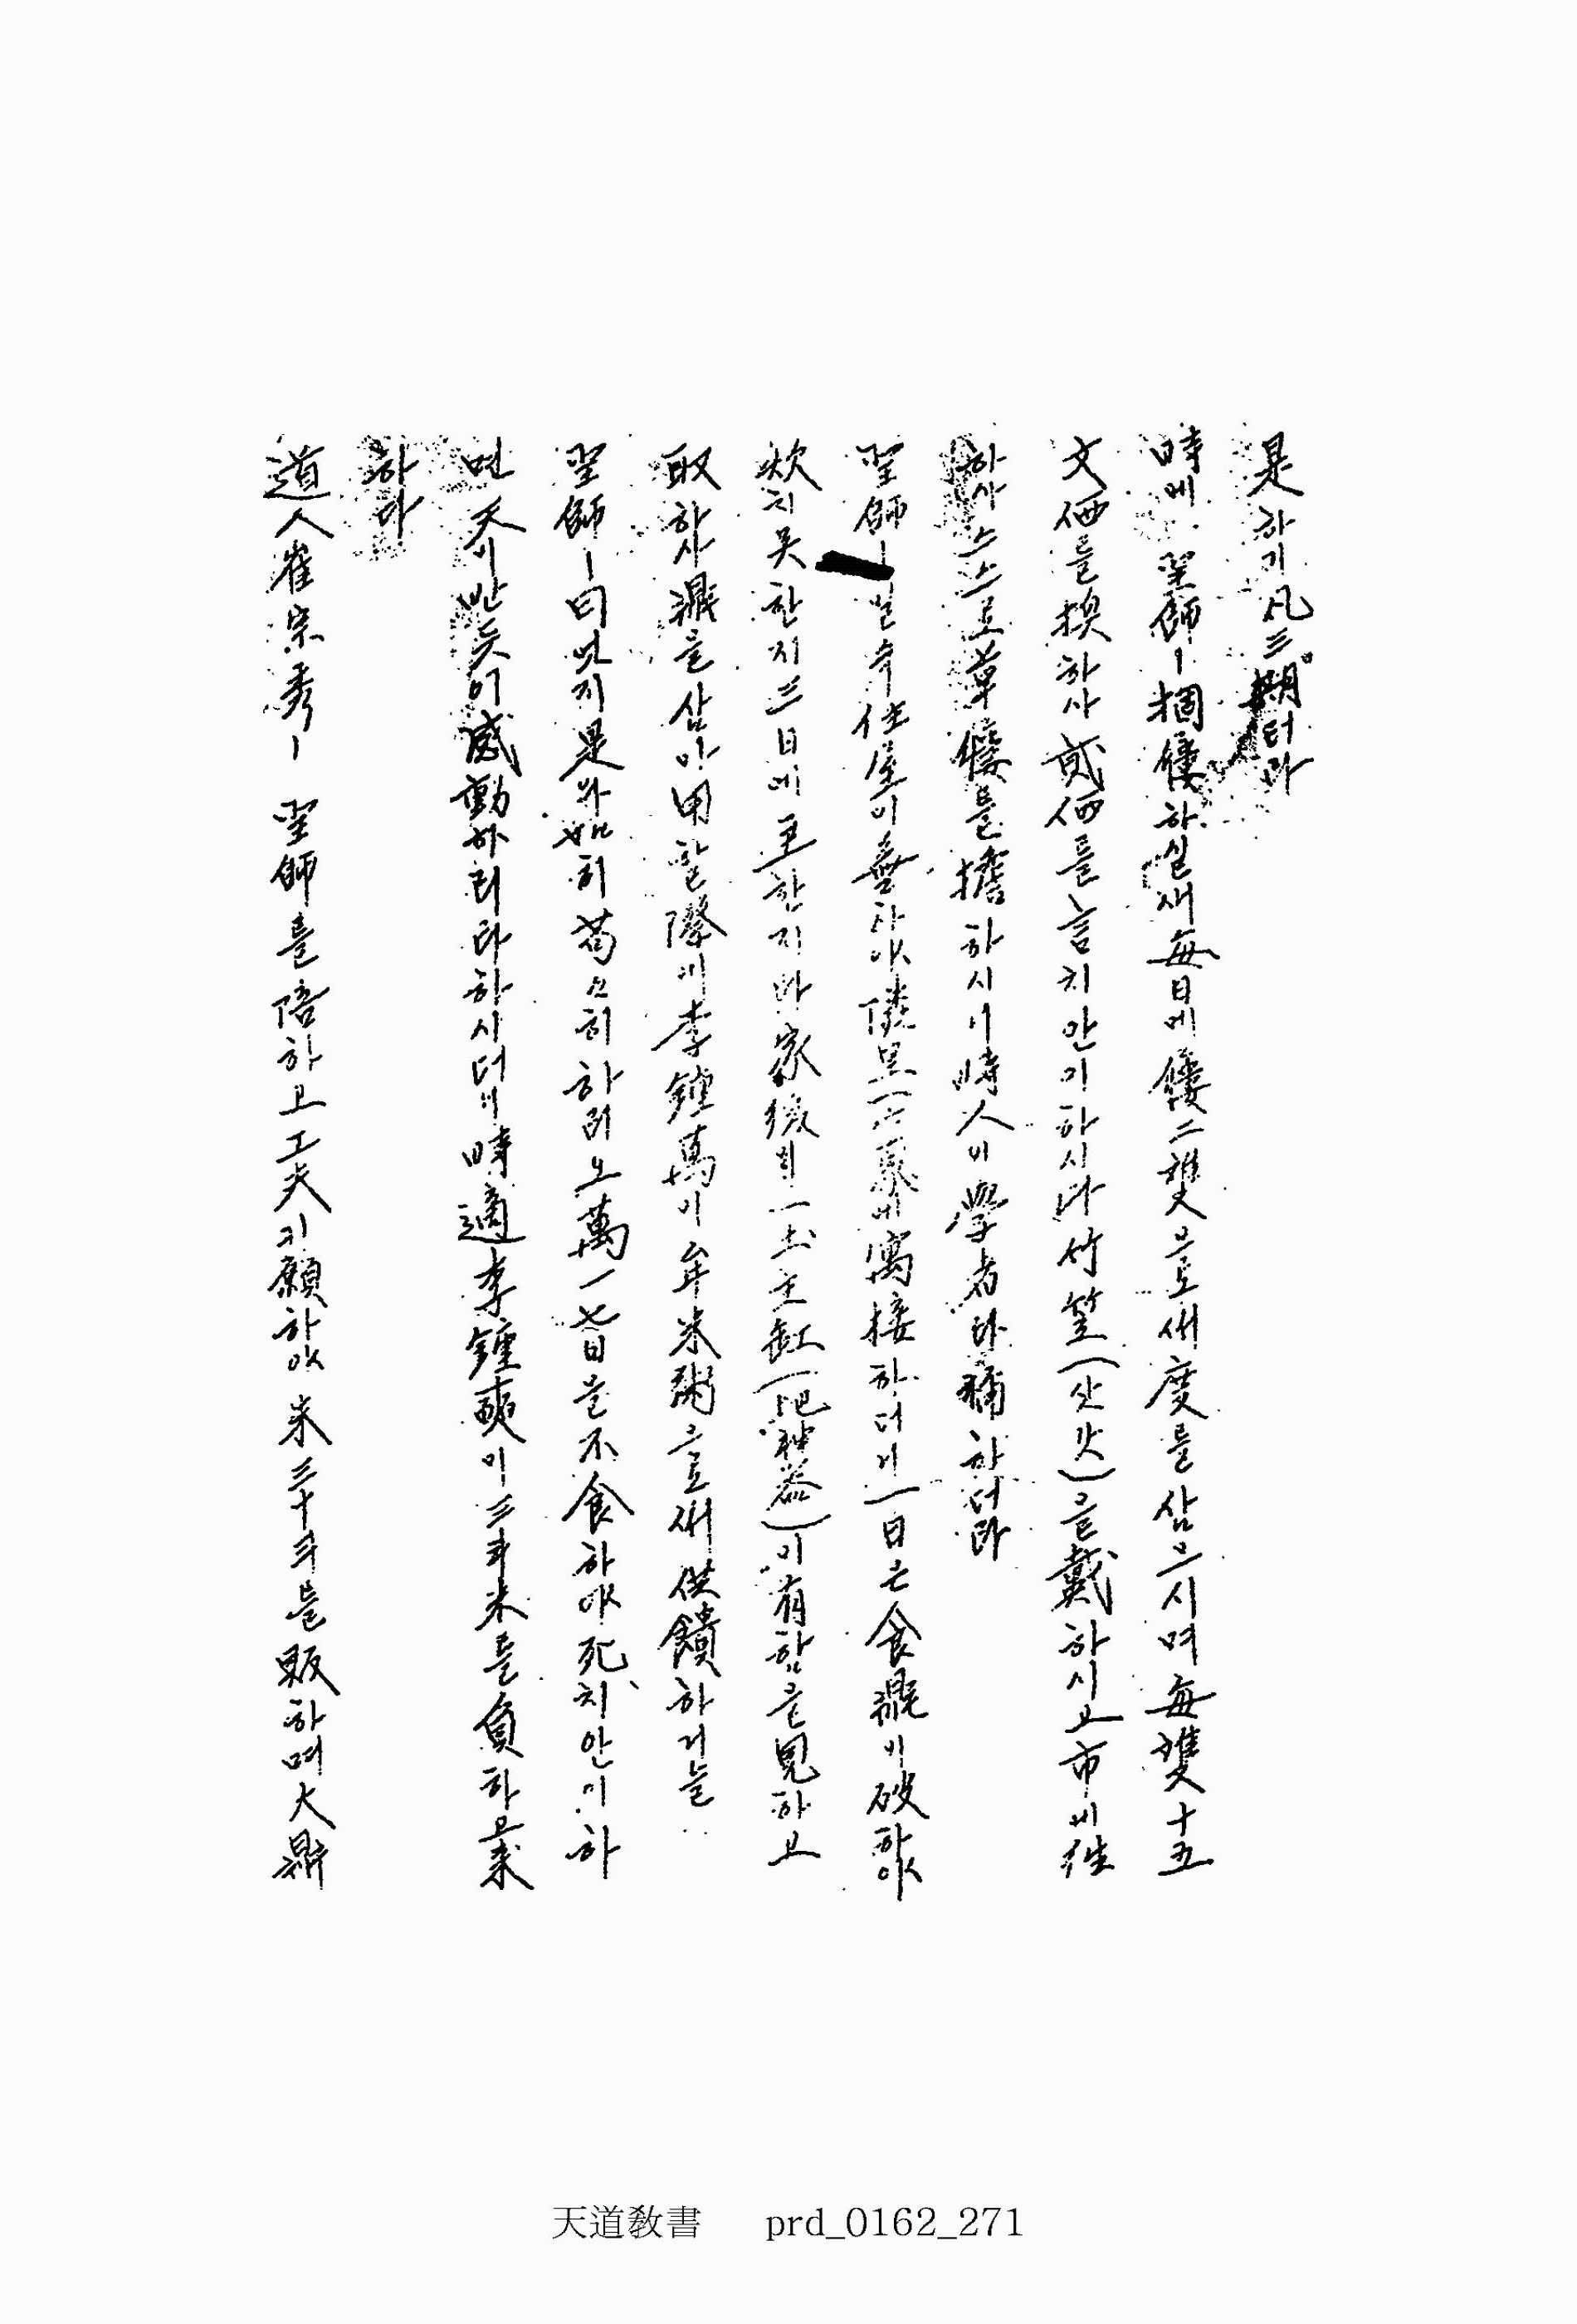 是하기凡三朔터라
時에 聖師ㅣ捆屨하실새每日에屨二雙으로새度를삼으시며每雙十五
文価를換하사貳価를言치안이하시다竹笠(삿갓)을戴하시고市에往
하사스스로草屨를擔하시니時人이學者라稱하더라
聖師ㅣ일즉住屋이無하야隣里 에寓接하더니一日은食鼎이破하야
炊치못한지三日에至한지라家後의一土主缸( 神器)이有함을見하고
取하사鼎을삼아用할際에李鍾萬이牟米粥으로새供饋하거늘
聖師ㅣ曰엇지是와如히苟々히하리오萬一七日을不食하야死치안이하
면天이반듯이感動하리라하시더니時適李鍾奭이三斗米를負하고來
하다
道人崔宗秀ㅣ 聖師를陪하고工夫키願하야米三十斗를販하며大鼎
天道敎書 prd_0162_271